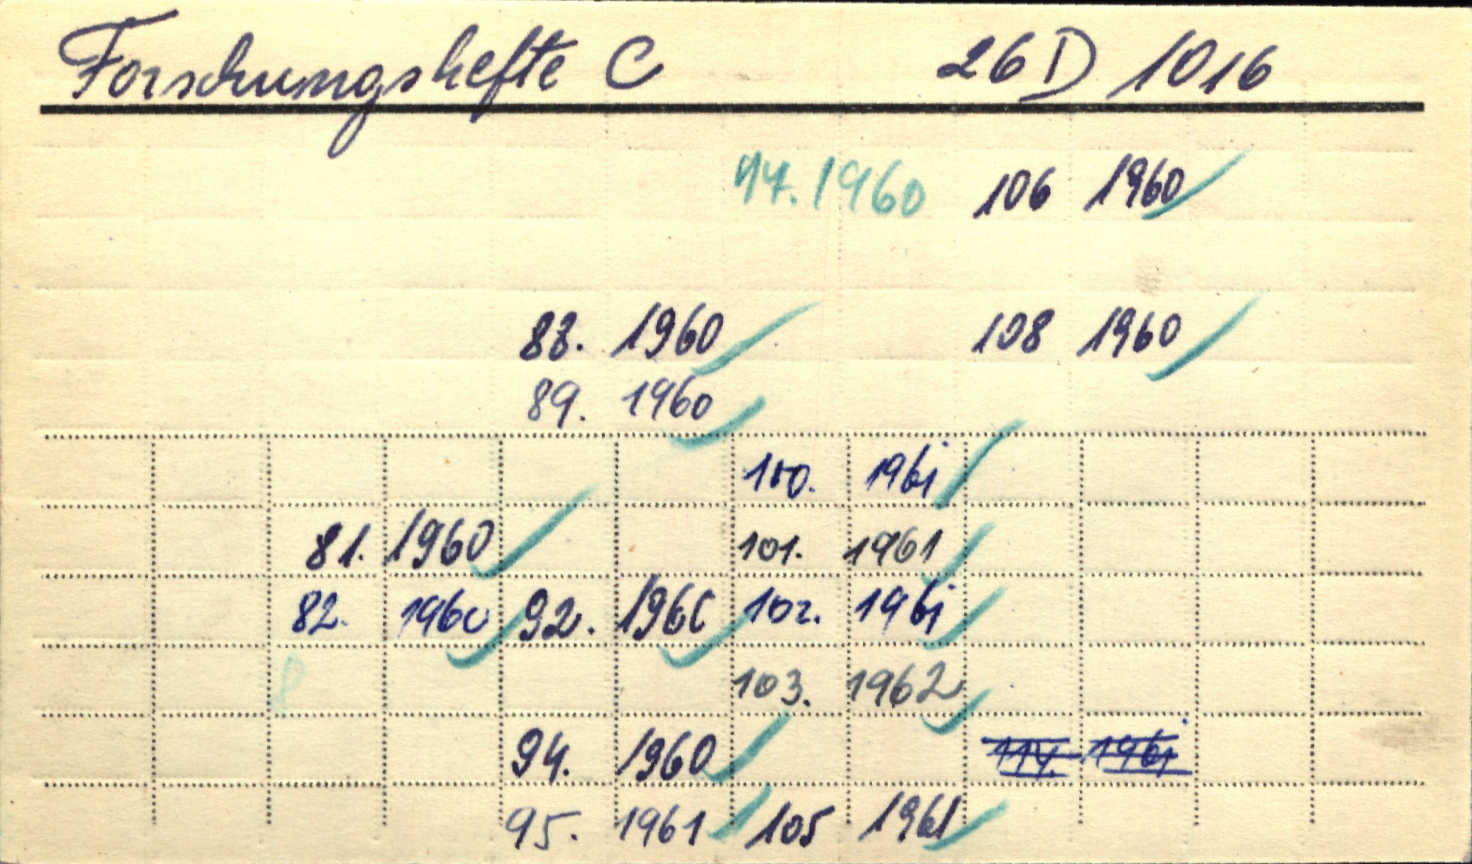 Forschungshefte C 26 D 1016
97. 1960 106 1960
88. 1960 108 1960
89. 1960
100. 1961
81. 1960 101. 1961
82. 1960 92. 1960 102. 1961
103. 1962
94. 1960 114. 1961
95. 1961 105 1961